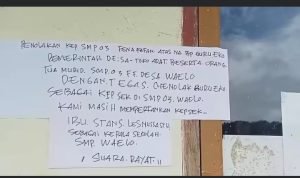 PENOLAKAN KEP SMP 03
PEMERINTAH DESA - TOKO ADAT BESERTA ORANG
TUA MURID. SMP 03 DESA WAELO
DENGAN TEGAS. MENOLAK BURU EKO
SEBAGAI KEPSEK DI SMP 03. WAELO.
KAMI MASIH MEMPERTAHANKAN KEPSEK.
IBU STANS. LESNUSSA
SEBAGAI KEPALA SEKOLAH
SMP WAELO.
"SUARA RAYAT"